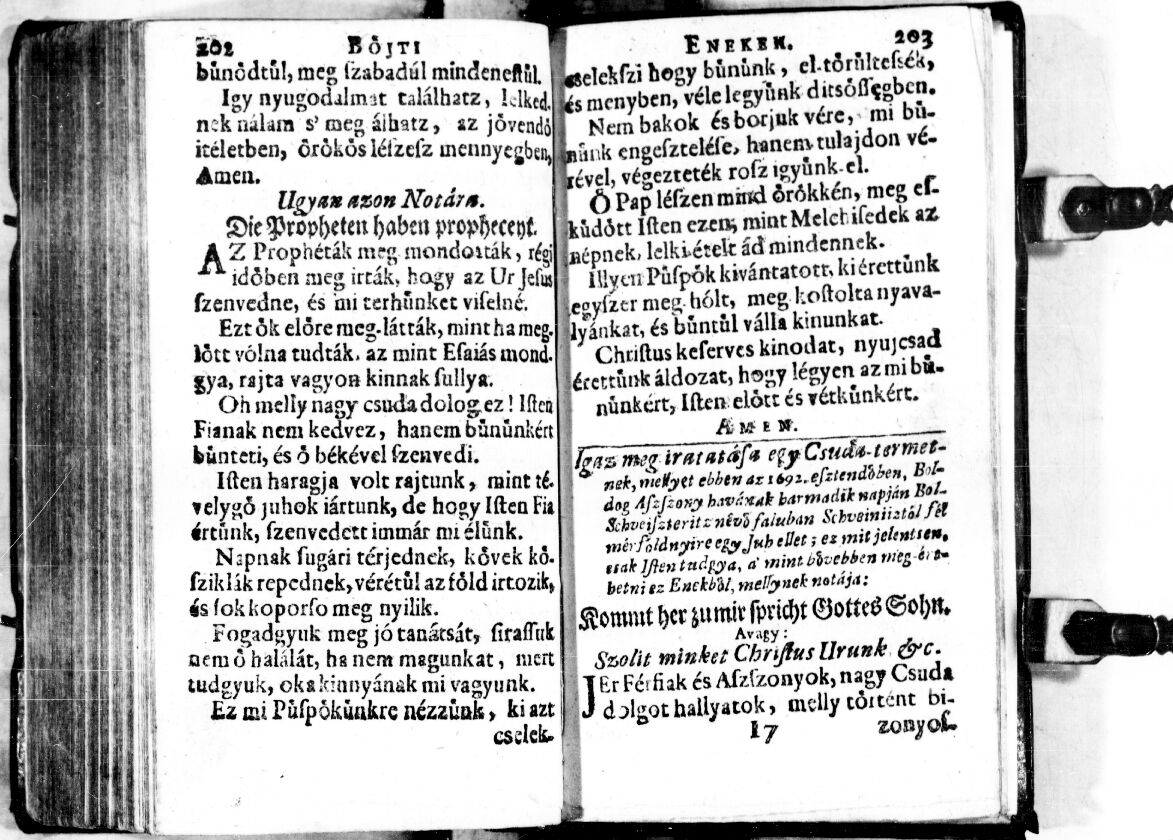 202 BÖJTI
bünödtül, meg ſzabadúl mindeneſtül.
Igy nyugodalmat találhatz, lelked-
nek nálam s' meg álhatz, az jövendö
itéletben, örökös léſzeſz mennyegben,
Amen.
Ugyan azon Notára.
Die Propheten haben propheceyt.
AZ Prophéták meg mondották, régi
idöben meg irták, hogy az Ur Jeſus
ſzenvedne, és mi terhünket viſelné.
Ezt ök elöre meg-látták, mint ha meg-
lött vólna tudták, az mint Eſaiás mond-
gya, rajta vagyon kinnak ſullya.
Oh melly nagy csuda dolog ez! Iſten
Fianak nem kedvez, hanem bününkért
bünteti, és ö békével ſzenvedi.
Iſten haragja volt rajtunk, mint té-
velygö juhok iártunk, de hogy Iſten Fia
értünk, ſzenvedett immár mi élünk.
Napnak ſugári térjednek, kövek kö-
ſziklák repednek, vérétül az föld irtozik,
és ſok koporſo meg nyilik.
Fogadgyuk meg jó tanátsát, ſiraſſuk
nem ö halálát, ha nem magunkat, mert
tudgyuk, oka kinnyának mi vagyunk.
Ez mi Püſpökünkre nézzünk, ki azt
cselek-
ENEKEK. 203
cselekſzi hogy bününk, el-törülteſsék,
és menyben, véle legyünk ditsöſſégben.
Nem bakok és borjuk vére, mi bü-
nünk engeſztelése, hanem tulajdon vé-
rével, végezteték roſz igyünk-el.
Ö Pap léſzen mind örökkén, meg eſ-
küdött Iſten ezen, mint Melchiſedek az
népnek, lelki ételt ád mindennek.
Illyen Püſpök kivántatott, ki érettünk
egyſzer meg-hólt, meg koſtolta nyava-
lyánkat, és büntül válla kinunkat.
Chriſtus keſerves kinodat, nyujcsad
érettünk áldozat, hogy légyen az mi bü-
nünkért, Iſten elött és vétkünkért.
AMEN.
Igaz meg iratatáſa egy Csuda-termet-
nek, mellyet ebben az 1692. eſztendöben, Bol-
dog Aſzſzony havának harmadik napján Bol-
Schveiſzteritz névö faluban Schveiniiztól fél
mérföldnyire egy Juh ellet; ez mit jelentsen,
csak Iſten tudgya, a' mint bövebben meg-ér-
hetni ez Enekböl, mellynek notája:
Kommt her zu mir spricht Gottes Sohn.
Avagy:
Szolit minket Chriſtus Urunk &c.
JEr Férfiak és Aſzſzonyok, nagy Csuda
dolgot hallyatok, melly törtėnt bi-
I7 zonyoſ-